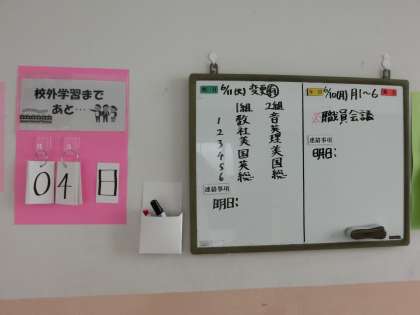 校外学習まで
あと…
04日
6/11(火) 変更有
1組 2組
1 数 音
2 社 英
3 美 理
4 国 美
5 英 国
6 総 総
連絡事項
明日:
6/10(月) 月1~6
※職員会議
連絡事項
明日: